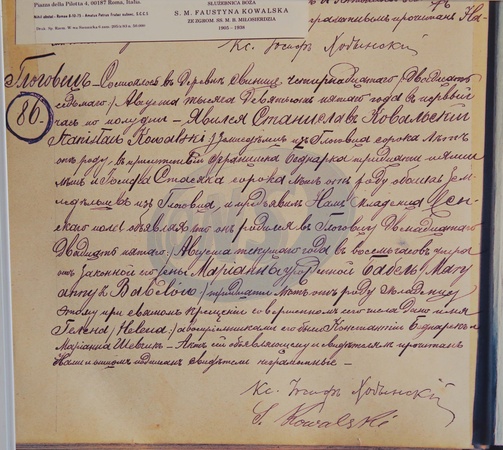 Piazza della Pilotta 4, 00187 Roma, Italia.
SŁUŻEBNICA BOŻA
S. M. FAUSTYNA KOWALSKA
ZE ZGROM. SS. M. B. MIŁOSIERDZIA
1905 - 1938
прочитан
Кс. Iосифъ
86.
Глоговецъ — Состоялось въ деревнѣ Свинице четырнадцатаго / двадцать
седьмаго / Августа тысяча девятьсотъ пятаго года въ первый
часъ по полудни — Явился Станиславъ Ковальскiй
Stanisław Kowalski земледѣлецъ изъ Глоговца сорока лѣтъ
отъ роду, въ присутствiи Францишка Беднарка тридцати пяти
лѣтъ и Iосифа Стасяка сорока лѣтъ отъ роду обоихъ зем
ледѣльцевъ изъ Глоговца, и предъявилъ Намъ младенца Жен
скаго пола объявляя что онъ родился въ Глоговцу двѣнадцатаго
двадцать пятаго / Августа текущаго года въ восемь часовъ утра
отъ законной его жены Марiанны урожденной Бабель / Mary
anny z Babelów / тридцати лѣтъ отъ роду Младенцу
этому при святомъ крещенiи совершенномъ сего числа дано имя
Гелена / Helena / а воспрiемниками его были Константiй Беднарекъ и
Марiанна Шевчикъ — Актъ сей объявляющему и свидѣтелямъ прочитанъ
Нами и онымъ подписанъ свидѣтели неграмотные —
Кс. Iосифъ
S. Kowalski